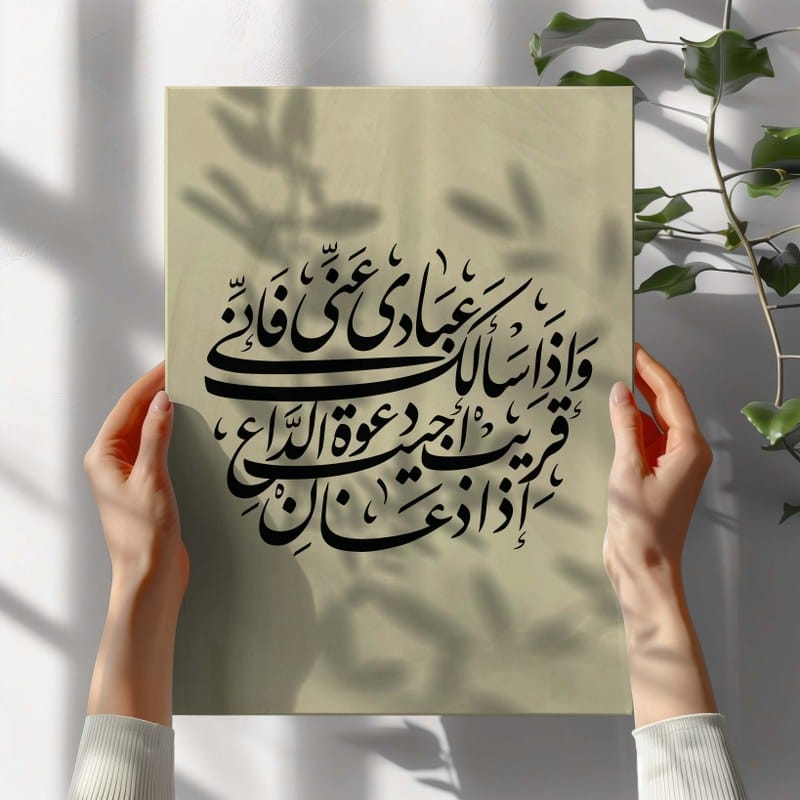 وَإِذَا سَأَلَكَ عِبَادِى عَنِّى فَإِنِّى
قَرِيبٌ أُجِيبُ دَعْوَةَ الدَّاعِ
إِذَا دَعَانِ